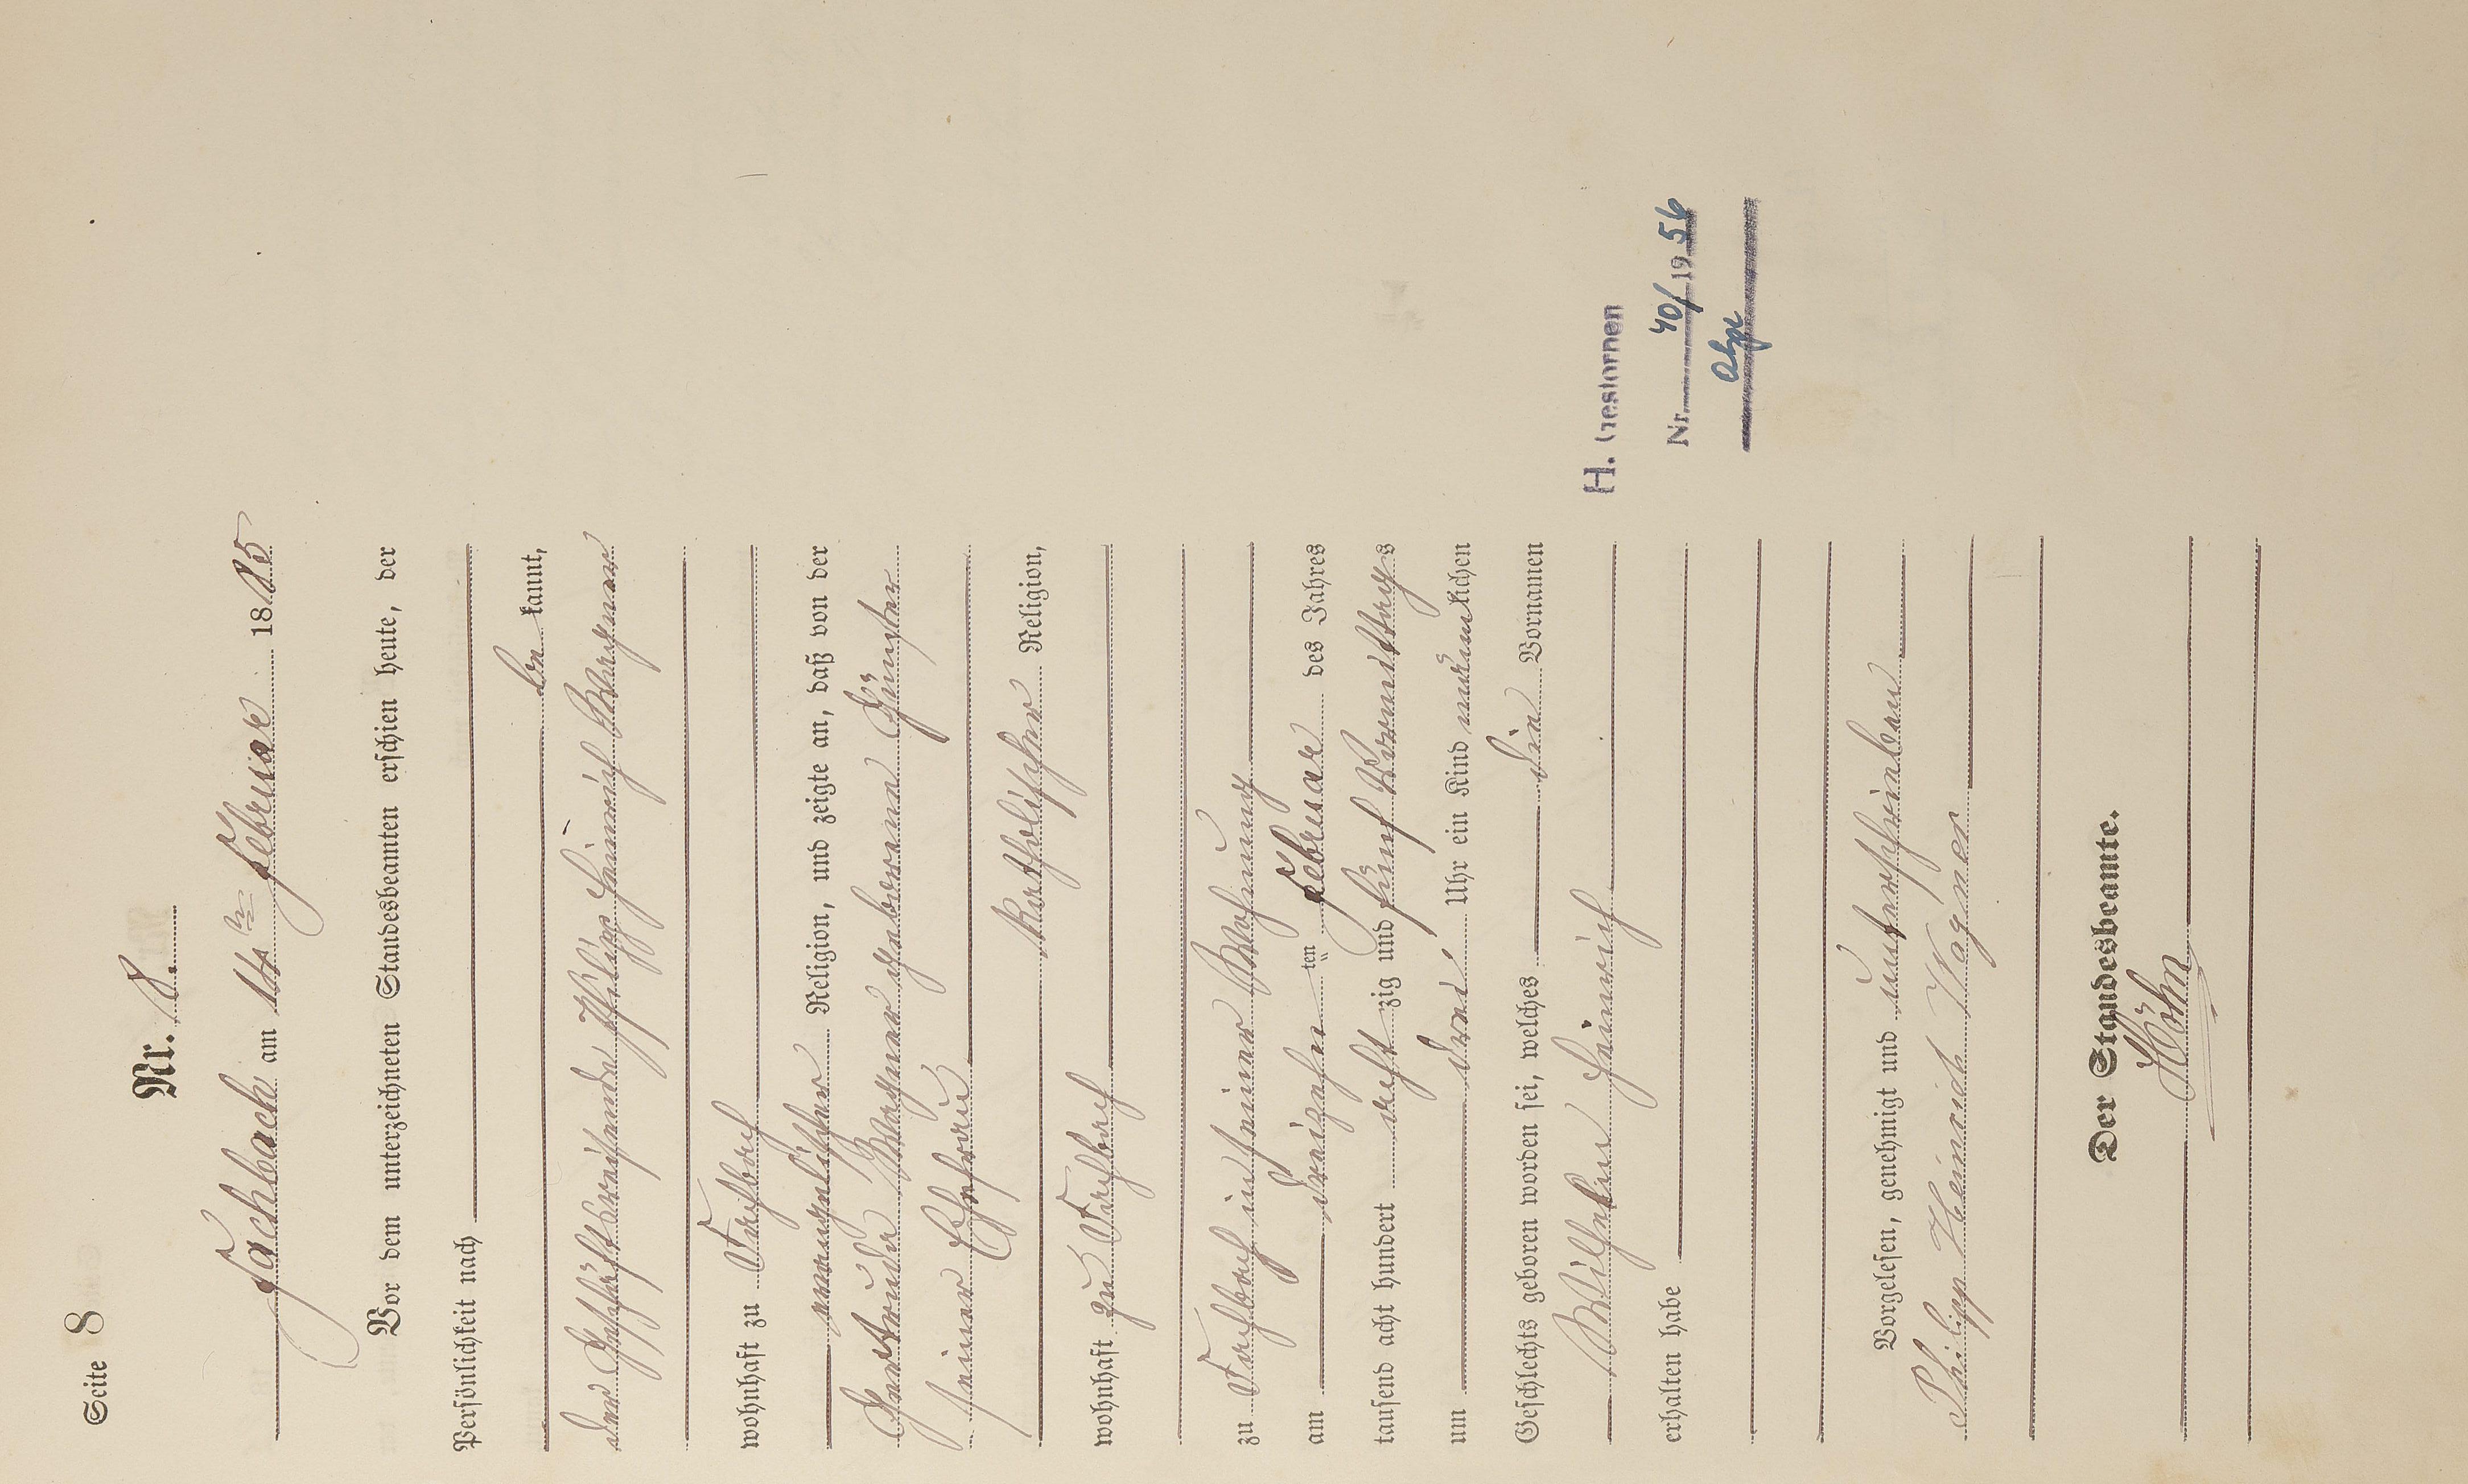 Seite 8
Nr. 8.
Fachbach am 14ten Februar 1885
Vor dem unterzeichneten Standesbeamten erschien heute, der
Persönlichkeit nach
be kannt,
der Geschäftsreisende Philipp Heinrich Wagner
wohnhaft zu Fachbach
evangelischer Religion, und zeigte an, daß von der
Gertrude Wagner geborene Günster
seiner Ehefrau
katholischer Religion,
wohnhaft zu Fachbach
zu Fachbach in seiner Wohnung
am dreizehn ten Februar des Jahres
tausend acht hundert acht zig und fünf Vormittags
um drei Uhr ein Kind männlichen
Geschlechts geboren worden sei, welches die Vornamen
Wilhelm Heinrich
erhalten habe
H. Gestorben
Nr. 40/1956
Vorgelesen, genehmigt und unterschrieben
Philipp Heinrich Wagner
Der Standesbeamte.
Höhn